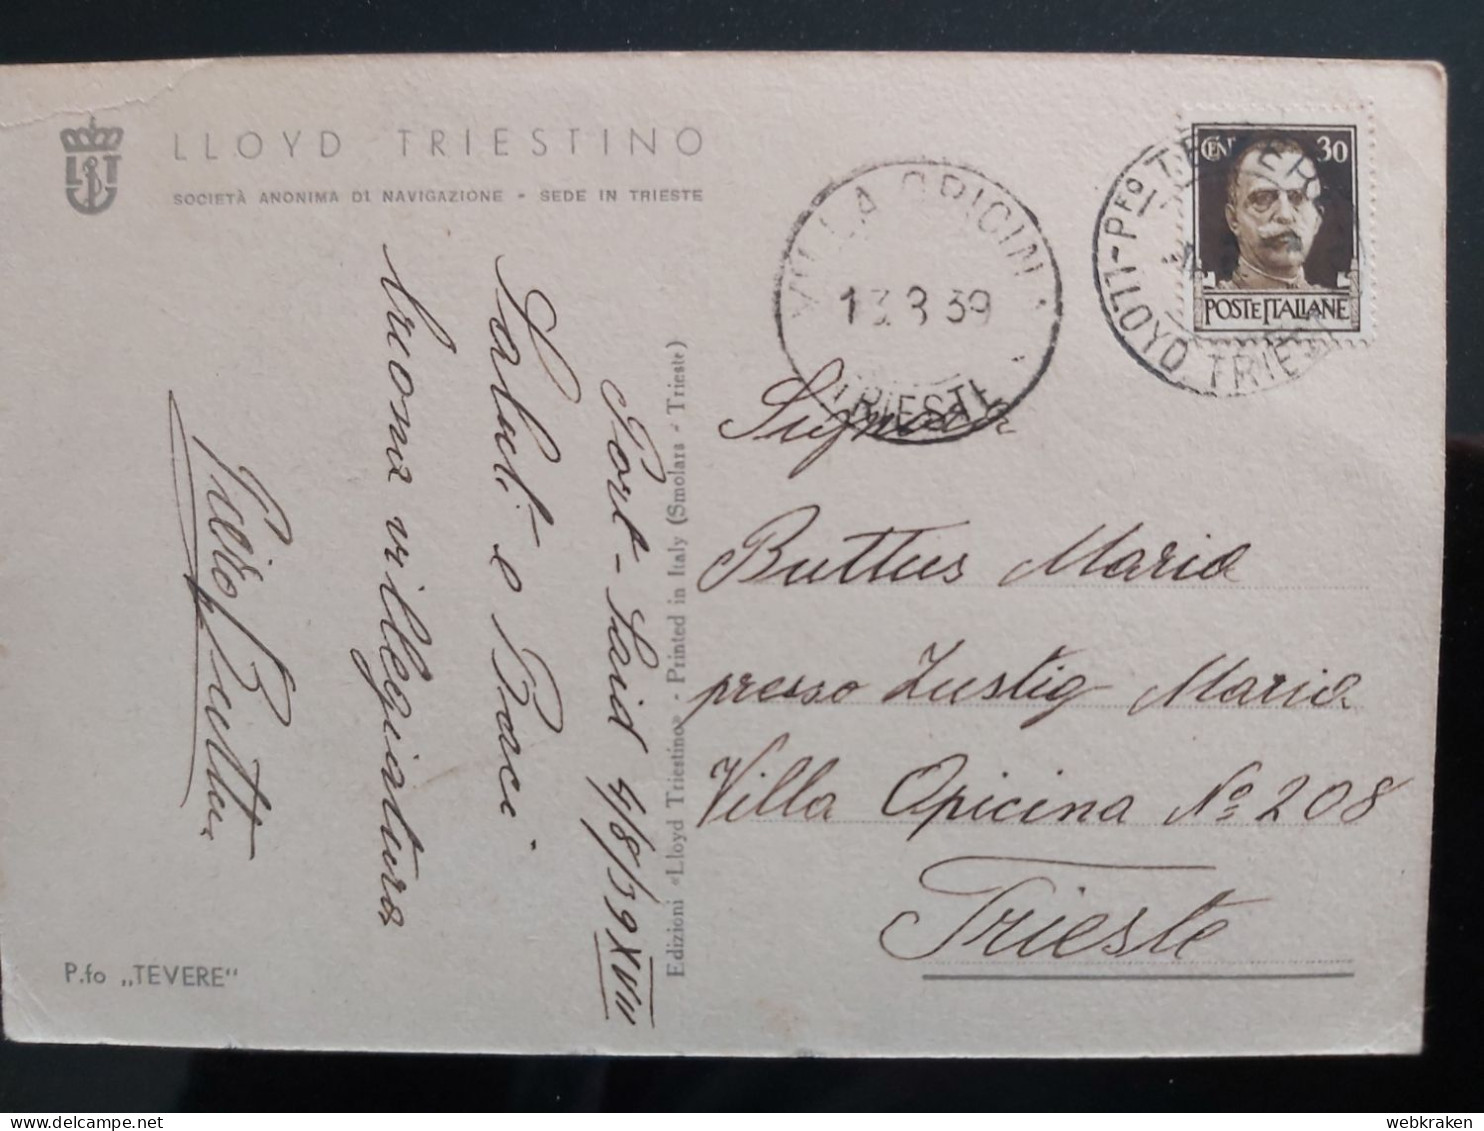 LLOYD TRIESTINO
SOCIETÀ ANONIMA DI NAVIGAZIONE - SEDE IN TRIESTE
LT
Port-Said 4/8/39 XVII
Saluti e Baci
buona villeggiatura
P.fo „TEVERE"
Edizioni «Lloyd Triestino» - Printed in Italy (Smolars - Trieste)
VILLA OPICINA
13.8.39
TRIESTE
P.FO TEVERE
LLOYD TRIESTINO
CENT 30
POSTE ITALIANE
Signora
Buttus Maria
presso Zustig Maria
Villa Opicina No 208
Trieste
webkraken